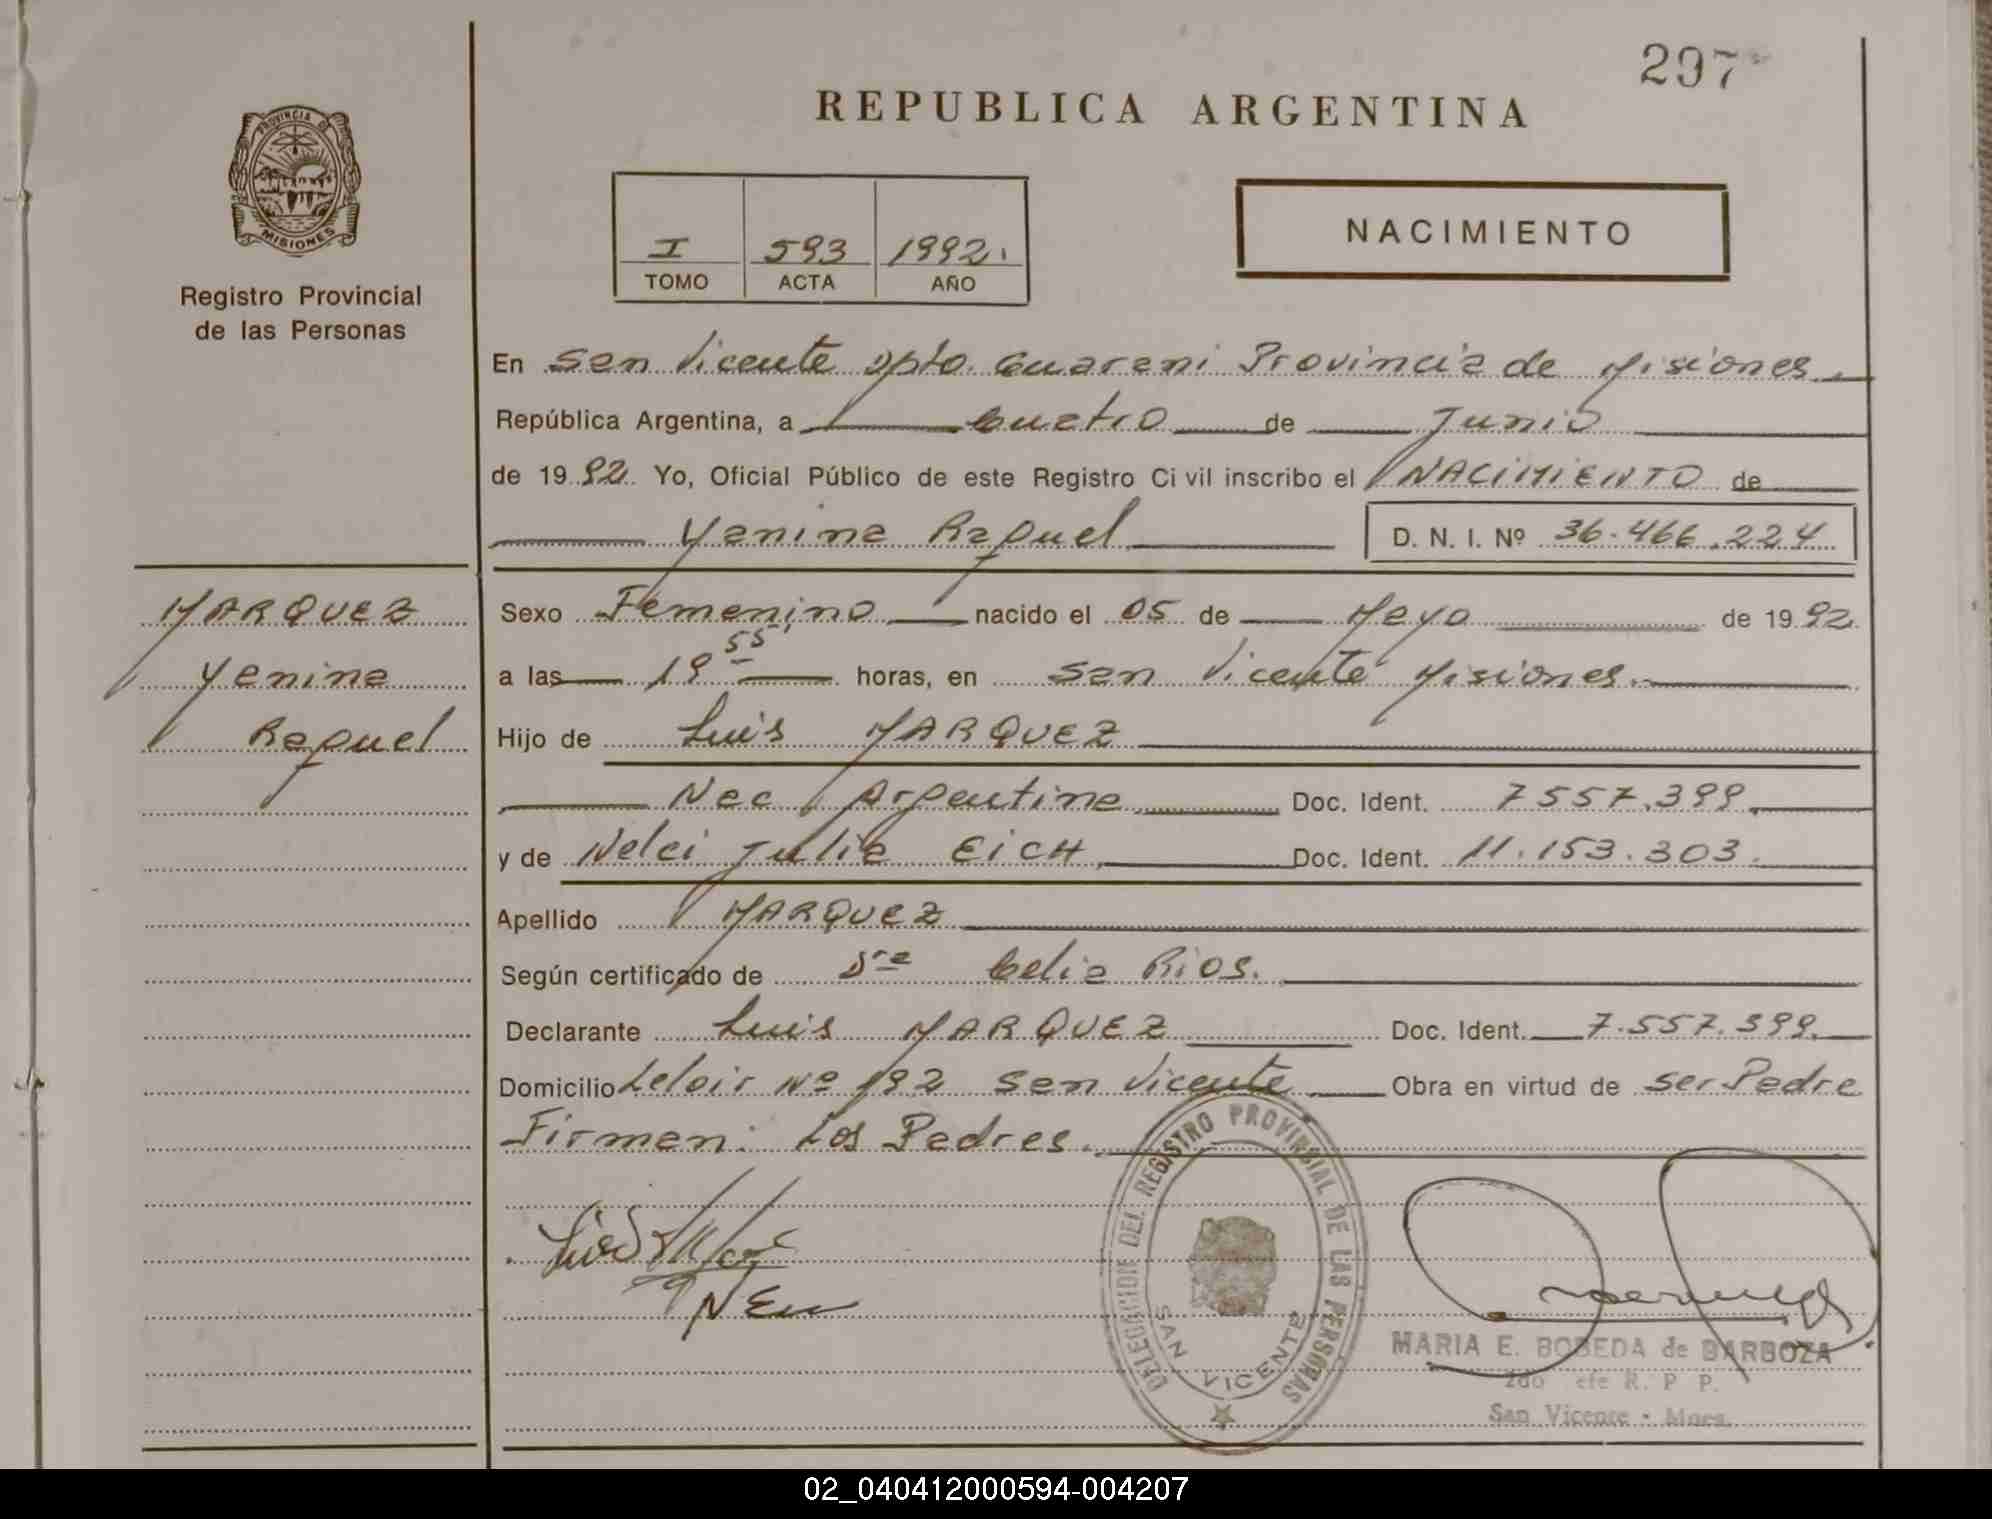 297
REPUBLICA ARGENTINA
PROVINCIA DE
MISIONES
Registro Provincial
de las Personas
I 593 1992.
TOMO ACTA AÑO
NACIMIENTO
En San Vicente Dpto. Guarani Provincia de Misiones
República Argentina, a Cuatro de Junio
de 1992 Yo, Oficial Público de este Registro Civil inscribo el NACIMIENTO de
Yanina Raquel D. N. I. Nº 36.466.224
MARQUEZ
Yanina
Raquel
Sexo Femenino nacido el 05 de Mayo de 1992
a las 19 55' horas, en San Vicente Misiones.
Hijo de Luis MARQUEZ
Nac Argentina Doc. Ident. 7557.399
y de Nelci Julia EICH Doc. Ident. 11.153.303.
Apellido MARQUEZ
Según certificado de Dra Celia Rios.
Declarante Luis MARQUEZ Doc. Ident. 7.557.399.
Domicilio Leloir Nº 192 San Vicente Obra en virtud de ser Padre
Firman: Los Padres.
DELEGACION DEL REGISTRO PROVINCIAL DE LAS PERSONAS
SAN VICENTE
MARIA E. BOBEDA de BARBOZA
2do R. P. P.
San Vicente - Mnes.
02_040412000594-004207